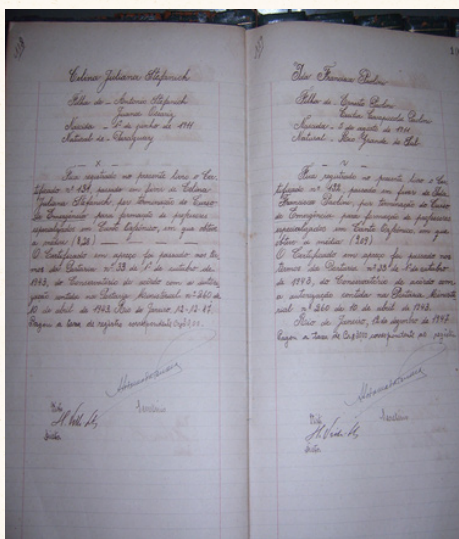 Celina Juliana Stefanich
Filha de - Antonio Stefanich
Juana
Nascida - 20 de junho de 1911
Natural de - Paraguay
x
Fica registado no presente livro o Cer-
tificado nº 131, passado em favor de Celina
Juliana Stefanich, por terminação de Curso
de Emergência para formação de professores
especializados em Canto Orfeônico, em que obteve
a média (8,26)
O Certificado em apreço foi passado nos ter-
mos da Portaria nº 33 de 1º de outubro de
1943, do Conservatório de acordo com a
contida na Portaria Ministerial nº 260 de
10 de abril de 1943. Rio de Janeiro, 12-12-47.
Pagou a taxa de registro correspondente
Visto
H. Villa-Lobos
Diretor
Secretário
Francisca Paulon
Filha de - Ernesto Paulon
Paulon
Nascida - 5 de agosto de 1911
Natural - Rio Grande do Sul
Fica registado no presente livro o
Certificado nº 132, passado em favor de
Francisca Paulon, por terminação de Curso
de Emergência para formação de professores
especializados em Canto Orfeônico, em que
obteve a média
O Certificado em apreço foi passado nos
termos da Portaria nº 33 de 1º de outubro
de 1943, do Conservatório de acordo com
a autorização contida na Portaria Ministe-
rial nº 260 de 10 de abril de 1943.
Rio de Janeiro, 12 de dezembro de 1947.
Pagou a taxa de correspondente ao registro
Visto
H. Villa-Lobos
Diretor
Secretário